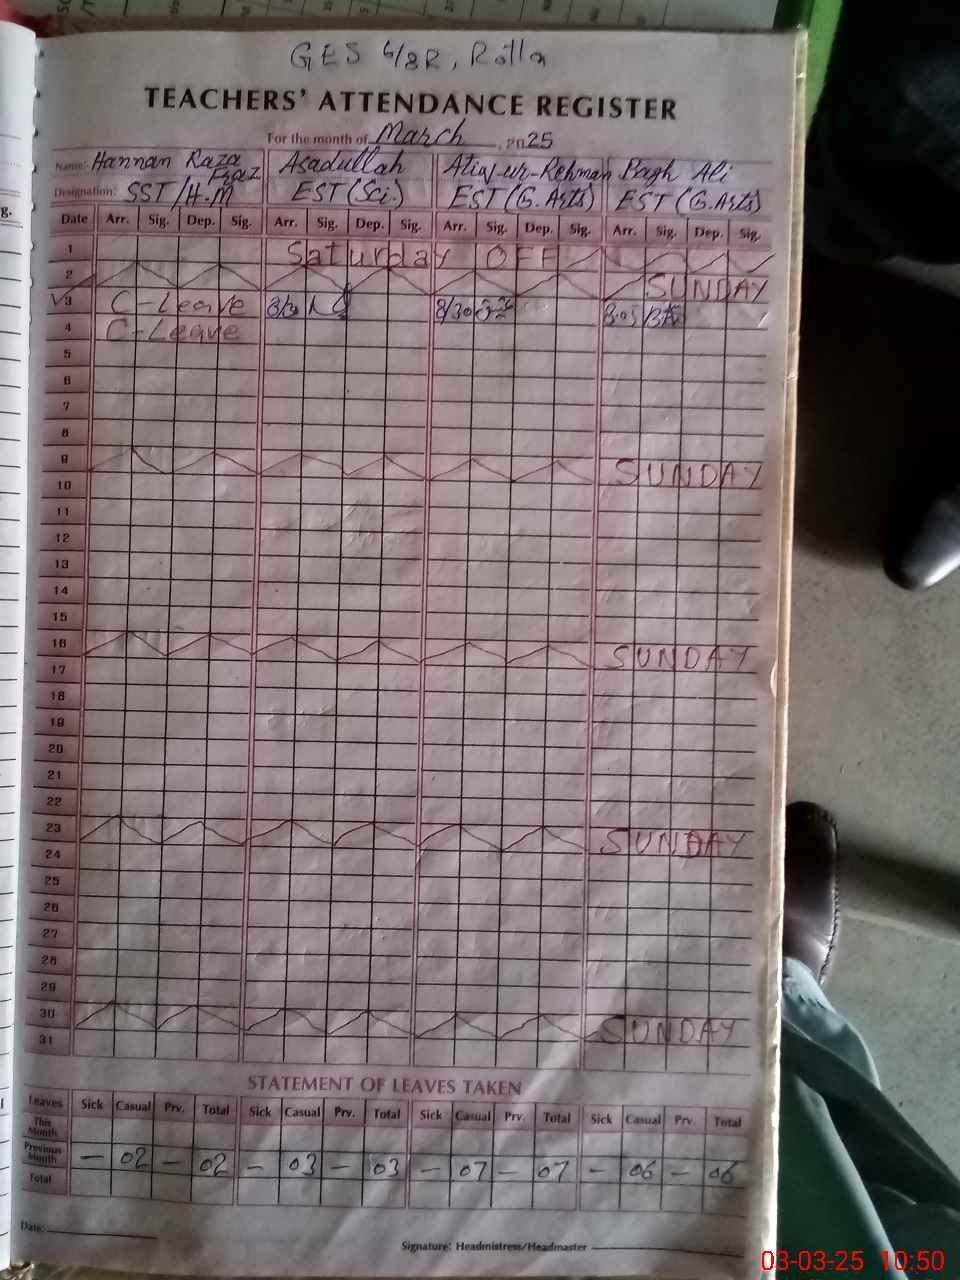 GES 6/8R, Rolla
TEACHERS' ATTENDANCE REGISTER
For the month of March, 2025
Name:- Hannan Raza Asadullah Atiq-ur-Rehman Bagh Ali
Designation: SST/H.M EST (Sci.) EST (G.Arts) EST (G.Arts)
Date Arr. Sig. Dep. Sig. Arr. Sig. Dep. Sig. Arr. Sig. Dep. Sig. Arr. Sig. Dep. Sig.
1 Saturday OFF
2 SUNDAY
3 C-Leave 8/30 8/30 8:05
4 C-Leave
5
6
7
8
9 SUNDAY
10
11
12
13
14
15
16 SUNDAY
17
18
19
20
21
22
23 SUNDAY
24
25
26
27
28
29
30 SUNDAY
31
STATEMENT OF LEAVES TAKEN
Leaves Sick Casual Prv. Total Sick Casual Prv. Total Sick Casual Prv. Total Sick Casual Prv. Total
This Month
Previous Month — 02 — 02 — 03 — 03 — 07 — 07 — 06 — 06
Total
Date:
Signature: Headmistress/Headmaster
03-03-25 10:50